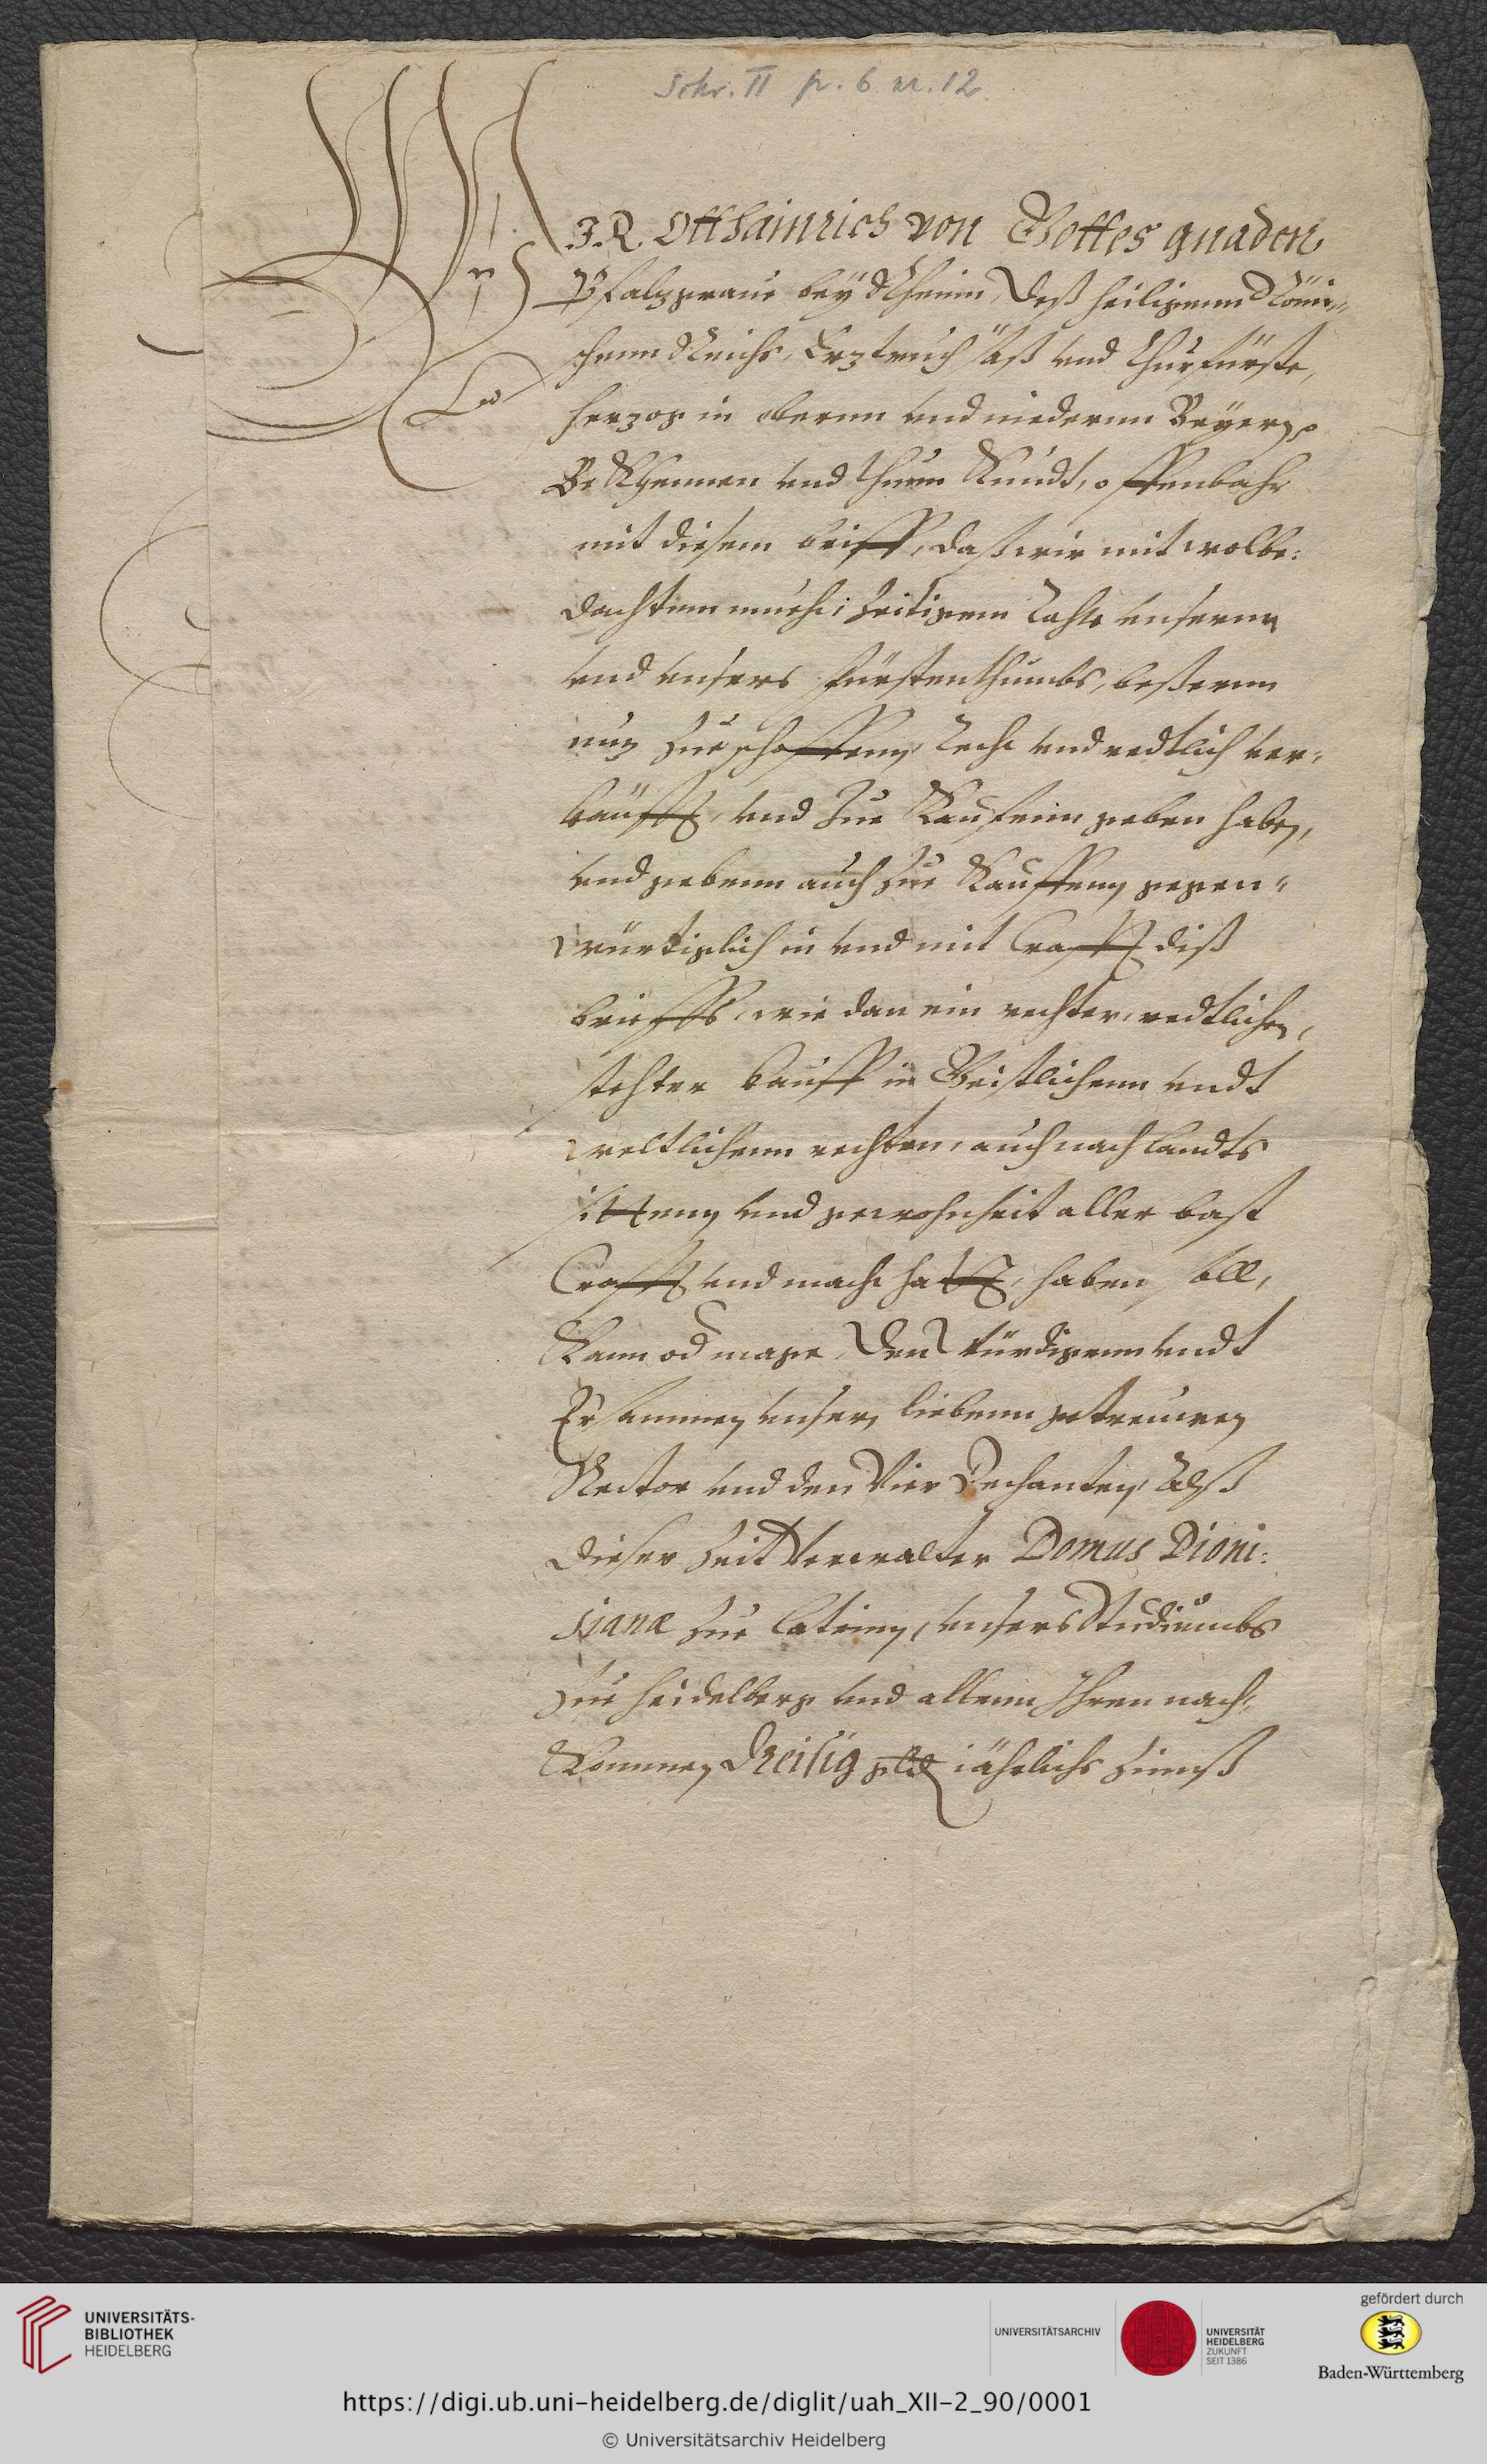 Schr. II p. 6 nr. 12.
WIR Otthainrich von Gottes gnaden
Pfalzgraue bey Rhein, deß heiligenn Römi-
schenn Reichs, Erztruchsäß vnd Churfürste,
Herzog in obernn vnd niedernn Beyern
Bekhennen vnd thuen Kundt, offenbahr
mit diesem brieff, daß wir mit wolbe-
dachtem mueth, zeitigem Rathe vnserm
vnd vnsers Fürstenthumbs, beßerenn
nuz zue schaffenn, Recht vnd redtlich ver-
kaufft, vnd zue Kauf einn geben haben,
vnd gebenn auch zue Kauffenn gegen-
würtiglich in vnd mit Crafft diß
brieffs, wie dan ein rechter, redtlicher,
stehter kauff in Geistlichenn vndt
weltlichenn rechten, auch nach landts
sittenn vnd gewohnheit aller bast
Crafft vnd macht hatt, haben soll,
Kann od mage, den würdigenn vndt
Ersammen vnsern liebenn getreuwen
Rector vnd den Vier Dechanten, Alß
dieser Zeit Verwalter Domus Dioni-
sianæ zue latein, vnsers Studiumbs
zue Heidelberg vnd allenn Ihren nach-
Kommen Dreisig gld jährlichs Zinnß
UNIVERSITÄTS-
BIBLIOTHEK
HEIDELBERG
UNIVERSITÄTSARCHIV
UNIVERSITÄT
HEIDELBERG
ZUKUNFT
SEIT 1386
gefördert durch
Baden-Württemberg
https://digi.ub.uni-heidelberg.de/diglit/uah_XII-2_90/0001
© Universitätsarchiv Heidelberg